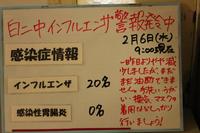 日二中インフルエンザ警報発令中
感染症情報
2月6日(水)
9:00現在
インフルエンザ 20名
感染性胃腸炎 0名
一昨日よりやや減
少しましたが、まだ
まだ油断できま
せん。手洗い、うが
い、換気、マスクの
着用はしっかり
行いましょう!